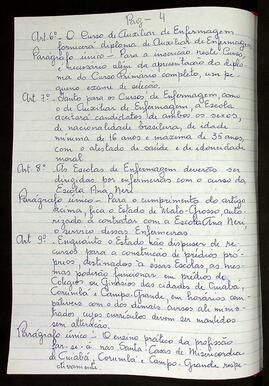 Pág - 4
Art. 6º - O Curso de Auxiliar de Enfermagem
fornecerá diploma de Auxiliar de Enfermagem
Parágrafo único - Para a inscrição neste Curso,
necessário além da apresentação do diplo
ma do Curso Primário completo, um pe
queno exame de seleção.
Art. 7º - Tanto para o Curso de Enfermagem, como
o de Auxiliar de Enfermagem, a Escola
aceitará candidatos de ambos os sexos,
de nacionalidade brasileira, de idade
mínima de 16 anos e máxima de 35 anos,
com o atestado de saúde e de idoneidade
moral
Art. 8º - As Escolas de Enfermagem deverão ser
dirigidas por enfermeiras com o curso da
Escola Ana Neri
Parágrafo único - Para o cumprimento do artigo
acima, fica o Estado de Mato-Grosso, auto
rizado a contratar com a Escola Ana Neri
o serviço dessas Enfermeiras
Art. 9º - Enquanto o Estado não dispuser de re
cursos para a construção de prédios pró
prios, destinados a essas Escolas, as mes
mas poderão funcionar em prédios de
Colégios ou Ginásios das cidades de Cuiabá,
Corumbá e Campo-Grande, em horários com
patíveis com o dos demais cursos ali minis
trados, cujos currículos devem ser mantidos
sem alteração.
Parágrafo único - O ensino prático da profissão
far-se-á nas Santas-Casas de Misericórdia
de Cuiabá, Corumbá e Campo-Grande respe
ctivamente